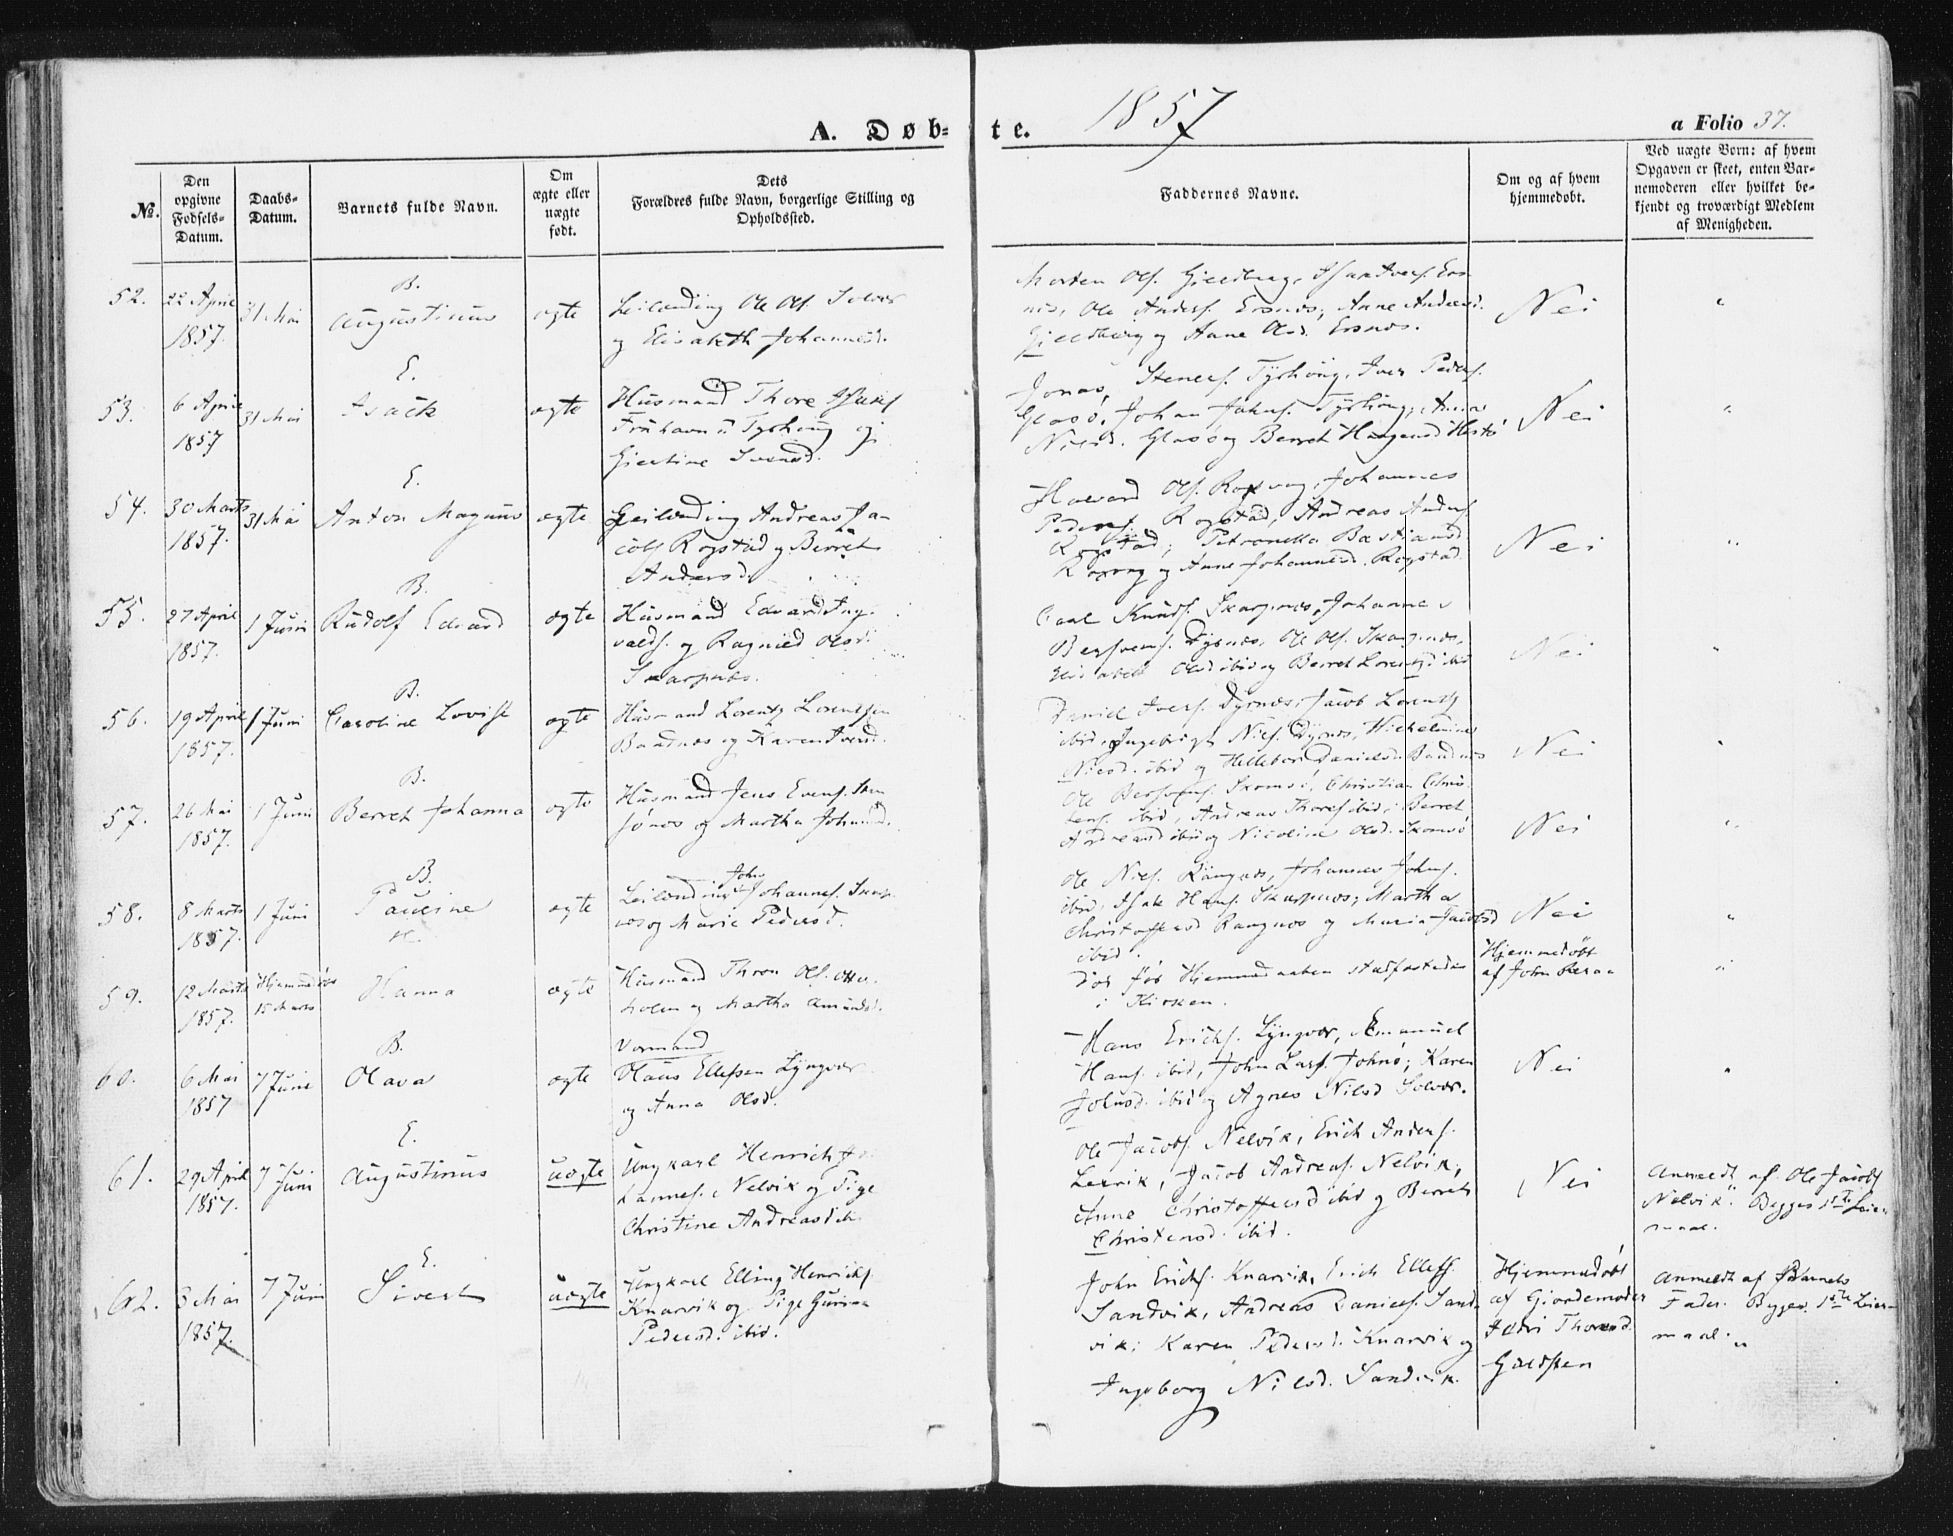 1857
A. Døbte.
a Folio 37.
№.
Den opgivne Fødsels-Datum.
Daabs-Datum.
Barnets fulde Navn.
Om ægte eller uægte født.
Dets Forældres fulde Navn, borgerlige Stilling og Opholdssted.
Faddernes Navne.
Om og af hvem hjemmedøbt.
Ved uægte Børn: af hvem Opgaven er skeet, enten Barnemoderen eller hvilket bekjendt og troværdigt Medlem af Menigheden.
52. 22 April 1857. 31 Mai
B.
Augustinus
ægte
Leilænding Ole Ols. Solvær
og Elisabeth Johannesd.
Morten Ols.
Ole Anders. Ersnæs, Anne Andersd.
og Anne Olsd. Ersnæs.
Nei
53. 6 April 1857 31 Mai
E.
Isack
ægte
Husmand Thore
Tyrhoug og
Jonas Steners. Tyrhoug, Iver Peders.
Glasø, Johan Johns. Tyrhoug, Anne
Nilsd. Glasø og Berret
Nei
54. 30 Marts 1857. 31 Mai
E.
Anton Magnus
ægte
Leilænding Andreas Ja-
cobs Rogstad og Berret
Andersd.
Havard Ols. Johannes
Peders. Rogstad, Andreas Anders
Rogstad; Petronella Bastiansd
og Anne Johannesd. Rogstad
Nei
55. 27 April 1857. 1 Juni
B.
Rudolf Edvard
ægte
Husmand Edvard Ing-
valds. og Ragnild Olsd
Skarpnæs.
Carl Knuds. Skarpnæs, Johannes
Dyrnæs, Ole Ols. Skarpnæs,
Elisabeth Olsd ibid og Berret Lorentzd ibid
Nei
56. 19 April 1857. 1 Juni
B.
Caroline Lovise
ægte
Husmand Lorentz Lorentzen
Baadnæs og Karen Iversd.
Daniel Ivers. Dyrnæs, Jacob Lorentz
ibid, Ingebrigt Niels. Dyrnæs, Wilhelmine
Nilsd. ibid og Danielsd. Baadnæs
Nei
57. 26 Mai 1857. 1 Juni
B.
Berret Johanna
ægte
Husmand Jens Evens.
og Martha
Ole Skomsø, Christian Chris-
tens. ibid, Andreas Thores ibid, Berret
Andreasd ibid og Nicoline Olsd. Skomsø
Nei
58. 8 Marts 1857. 1 Juni
B.
Pauline
ægte
John
Leilænding Johannes.
og Marie Pedersd.
Ole Niels. Rangnæs, Johannes Johns.
ibid, Isak Hans. Skarpnæs; Martha
Christoffersd Rangnæs og Maria Jacobsd
ibid.
Nei
59. 12 Marts 1857. Hjemmedøbt 15 Marts
K.
Hanna
ægte
Husmand Thron Ols. Otter-
holm og Martha Amundsd.
Død før Hjemmedaaben stadfæstedes
i Kirken.
Hjemmedøbt
af John
60. 6 Mai 1857 7 Juni
B.
Olava
ægte
Vormand
Hans Ellefsen Lyngvær
og Anna Olsd.
Hans Erichs. Lyngvær, Emanuel
Hans. ibid, John Lars. Johnø; Karen
Johnsd. ibid og Agnes Nilsd Solvær.
Nei
61. 29 April 1857. 7 Juni
E.
Augustinus
uægte
Ungkarl Henrich Jo-
hannes. Nelvik og Pige
Christine Andreasd ib.
Ole Jacobs Nelvik, Erich Anders.
Lervik, Jacob Andreas. Nelvik,
Anne Christoffersd ibid og Berret
Christensd. ibid.
Nei
Anmeldt af Ole Jacobs
Nelvik. Begges 1ste Leier-
maal.
62. 3 Mai 1857. 7 Juni
E.
Sivert
uægte
Ungkarl Elling Henrichs.
Knarvik og Pige Gurina
Pedersd. ibid.
John Erichs. Knarvik, Erich Ellefs.
Sandvik, Andreas Daniels. Sand-
vik; Karen Pedersd. Knarvik og
Ingeborg Nilsd. Sandvik.
Hjemmedøbt
af Giordemoder
Thoresd.
Anmeldt af Barnets
Fader. Begges 1ste Leier-
maal.